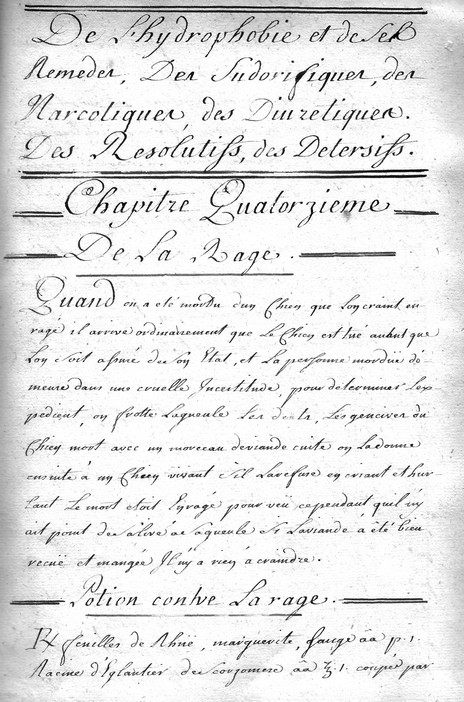 De L'hydrophobie et de Ses
Remedes, Des Sudorifiques, des
Narcotiques, des Diuretiques.
Des Resolutifs, des Detersifs.
Chapitre Quatorzieme
De La Rage.
Quand on a été mordu d'un Chien que l'on craint en
ragé il arrive ordinairement que Le Chien est tué avant que
L'on soit assuré de son Etat, et La personne mordüe de
meure dans une cruelle Incertitude, pour determiner L'ex
pedient, on frotte La gueule Les dents, Les gencives du
Chien mort avec un morceau de viande cuite on La donne
ensuite à un Chien vivant s'il La refuse en criant et hur
lant Le mort etoit Enragé pour veü cependant qu'il n'y
ait point de sa gueule La viande à été bien
recüe et mangée Il n'y a rien à craindre.
Potion contre La rage.
Rx feuilles de Rhüe, marguerite, sauge āā p. 1.
Racine d'Eglantier de scorzonere āā ʒ. 1. coupéz par